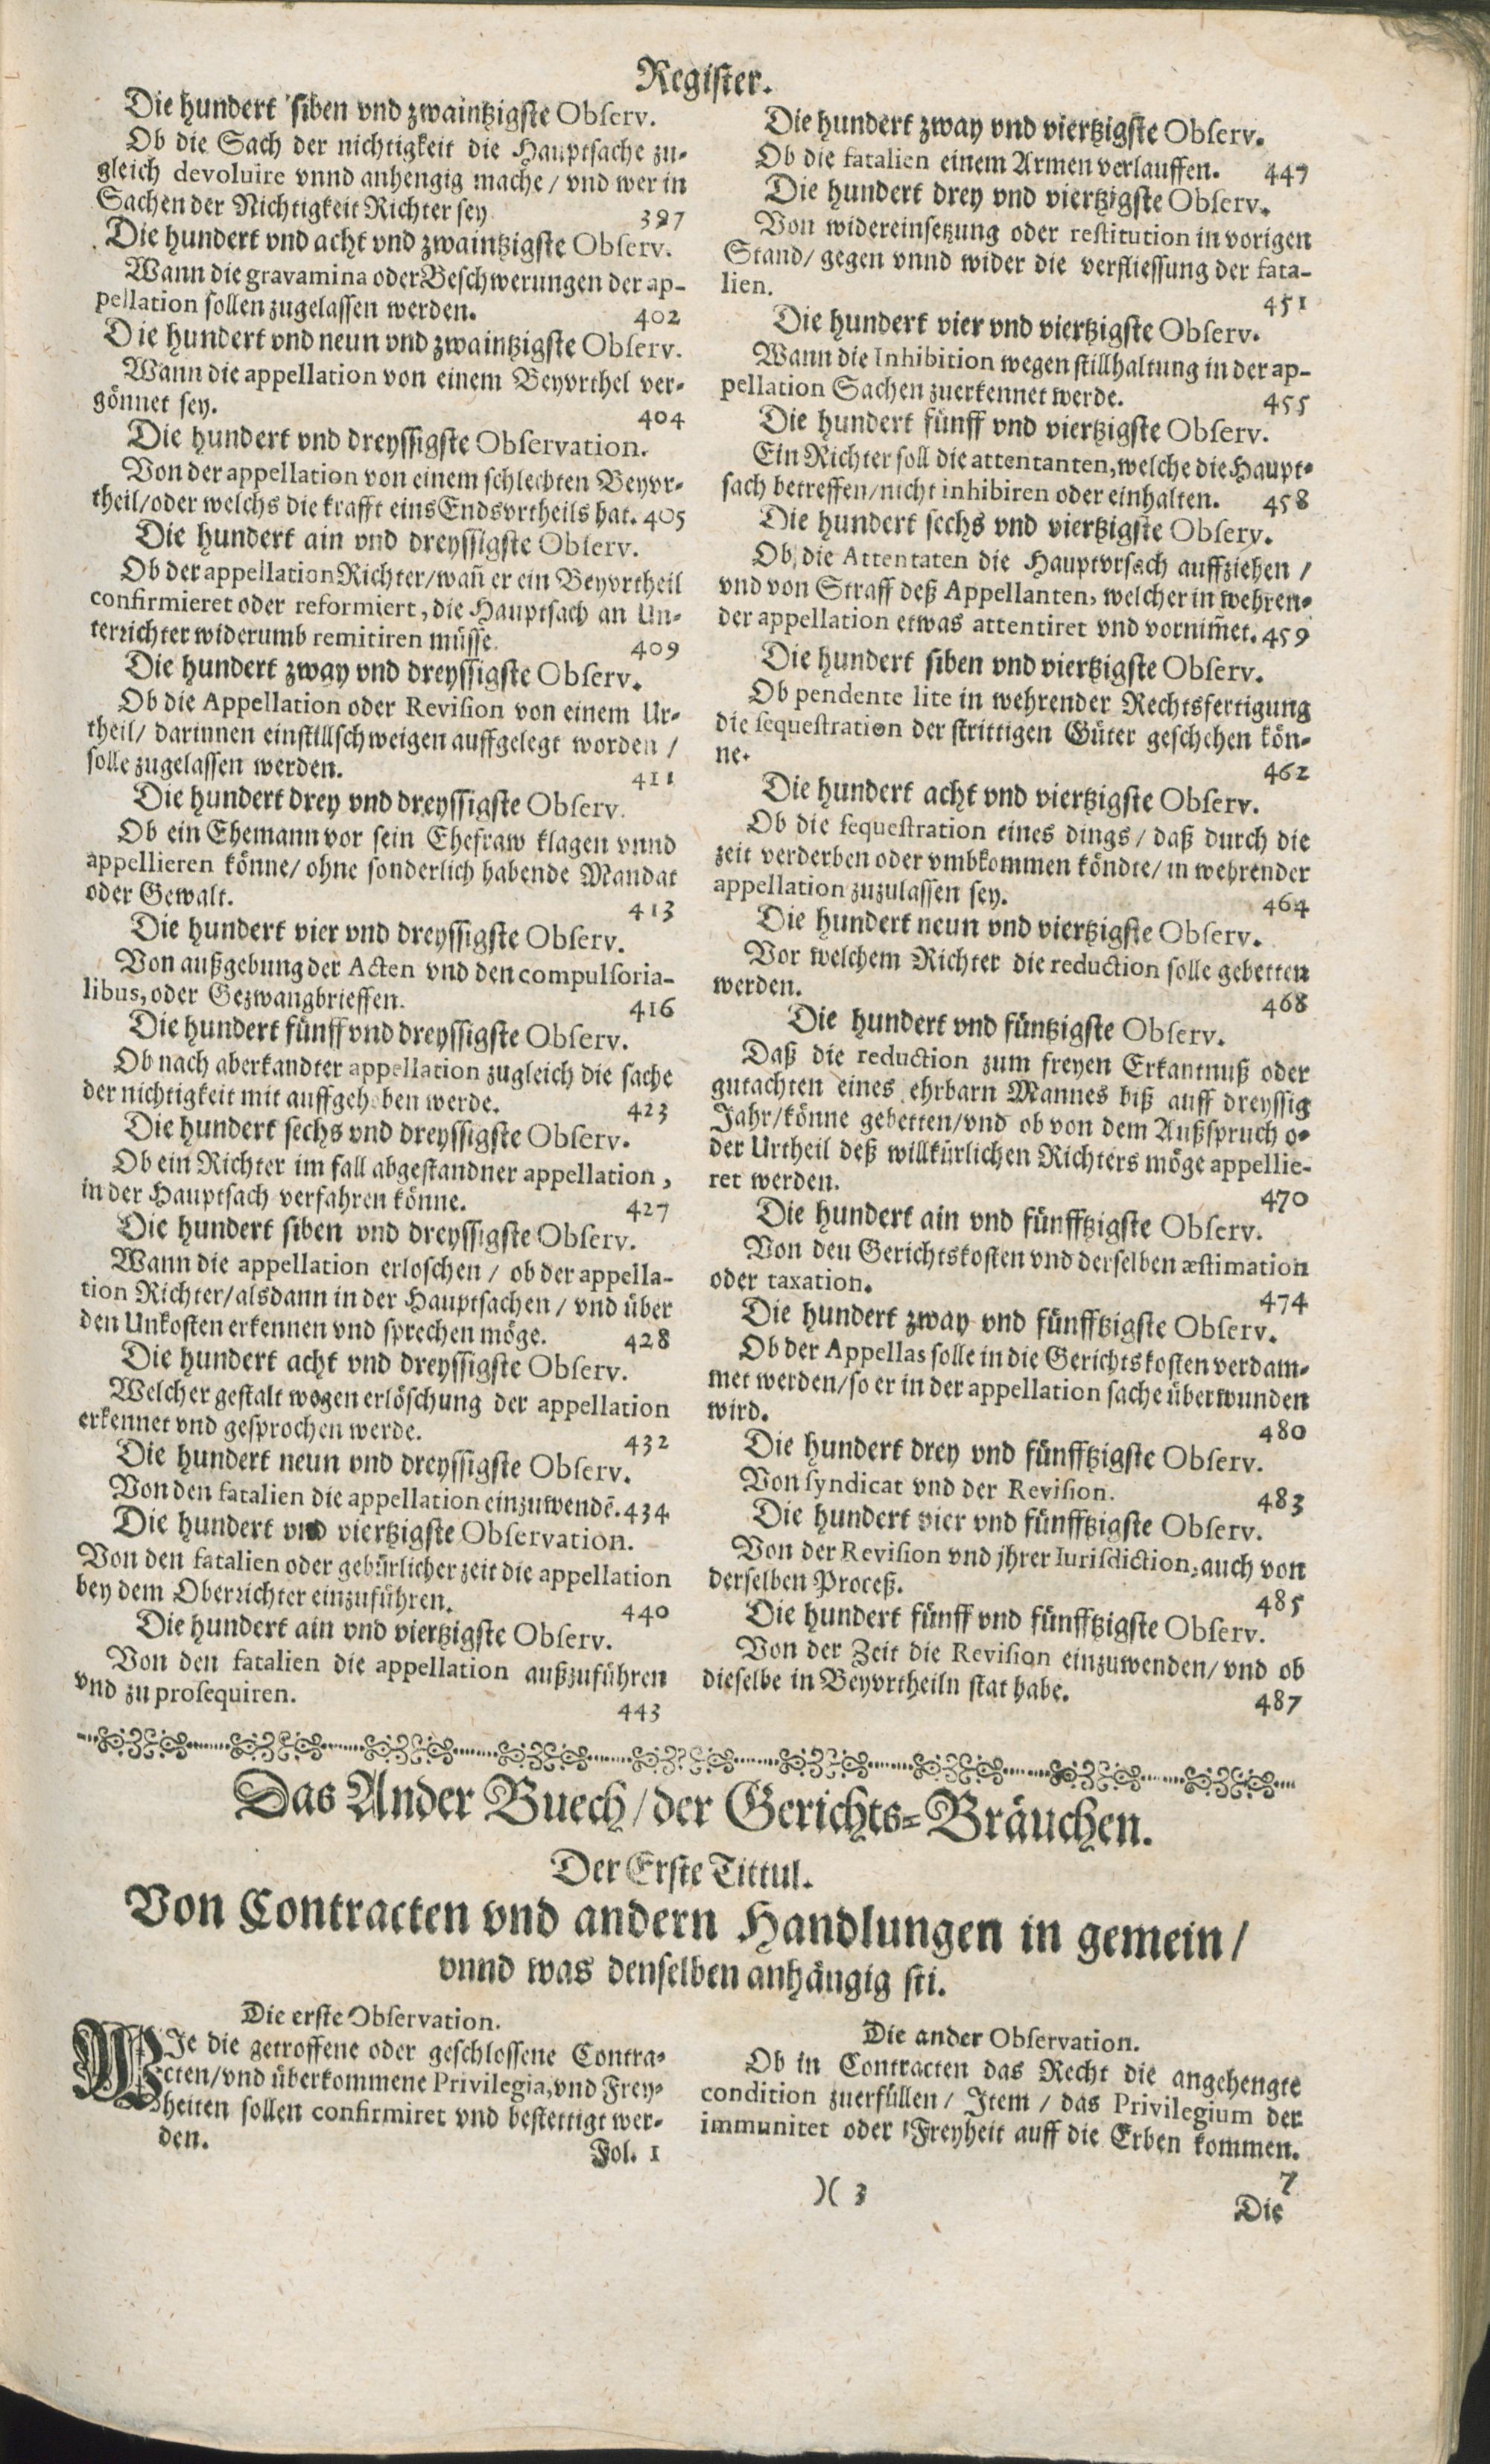 Register.
Die hundert siben vnd zwaintzigste Observ.
Ob die Sach der nichtigkeit die Hauptsache zu-
gleich devoluire vnnd anhengig mache / vnd wer in
Sachen der Nichtigkeit Richter sey 397
Die hundert vnd acht vnd zwaintzigste Observ.
Wann die gravamina oder Beschwerungen der ap-
pellation sollen zugelassen werden. 402
Die hundert vnd neun vnd zwaintzigste Observ.
Wann die appellation von einem Beyvrthel ver-
gönnet sey. 404
Die hundert vnd dreyssigste Observation.
Von der appellation von einem schlechten Beyvr-
theil/oder welchs die krafft eins Endsvrtheils hat. 405
Die hundert ain vnd dreyssigste Observ.
Ob der appellation Richter/wañ er ein Beyvrtheil
confirmieret oder reformiert, die Hauptsach an Un-
terrichter widerumb remitiren müsse. 409
Die hundert zway vnd dreyssigste Observ.
Ob die Appellation oder Revision von einem Ur-
theil/ darinnen ein stillschweigen auffgelegt worden /
solle zugelassen werden. 411
Die hundert drey vnd dreyssigste Observ.
Ob ein Ehemann vor sein Ehefraw klagen vnnd
appellieren könne/ ohne sonderlich habende Mandat
oder Gewalt. 413
Die hundert vier vnd dreyssigste Observ.
Von außgebung der Acten vnd den compulsoria-
libus, oder Gezwangbrieffen. 416
Die hundert fünff vnd dreyssigste Observ.
Ob nach aberkandter appellation zugleich die sache
der nichtigkeit mit auffgehoben werde. 423
Die hundert sechs vnd dreyssigste Observ.
Ob ein Richter im fall abgestandner appellation,
in der Hauptsach verfahren könne. 427
Die hundert siben vnd dreyssigste Observ.
Wann die appellation erloschen / ob der appella-
tion Richter/alsdann in der Hauptsachen / vnd über
den Unkosten erkennen vnd sprechen möge. 428
Die hundert acht vnd dreyssigste Observ.
Welcher gestalt wegen erlöschung der appellation
erkennet vnd gesprochen werde. 432
Die hundert neun vnd dreyssigste Observ.
Von den fatalien die appellation einzuwendē. 434
Die hundert vnd viertzigste Observation.
Von den fatalien oder gebürlicher zeit die appellation
bey dem Oberrichter einzuführen. 440
Die hundert ain vnd viertzigste Observ.
Von den fatalien die appellation außzuführen
vnd zu prosequiren. 443
Die hundert zway vnd viertzigste Observ.
Ob die fatalien einem Armen verlauffen. 447
Die hundert drey vnd viertzigste Observ.
Von widereinsetzung oder restitution in vorigen
Stand/ gegen vnnd wider die verfliessung der fata-
lien. 451
Die hundert vier vnd viertzigste Observ.
Wann die Inhibition wegen stillhaltung in der ap-
pellation Sachen zuerkennet werde. 455
Die hundert fünff vnd viertzigste Observ.
Ein Richter soll die attentanten, welche die Haupt-
sach betreffen/nicht inhibiren oder einhalten. 458
Die hundert sechs vnd viertzigste Observ.
Ob die Attentaten die Hauptvrsach auffziehen /
vnd von Straff deß Appellanten, welcher in wehren-
der appellation etwas attentiret vnd vornim̄et. 459
Die hundert siben vnd viertzigste Observ.
Ob pendente lite in wehrender Rechtsfertigung
die sequestration der strittigen Güter geschehen kön-
ne. 462
Die hundert acht vnd viertzigste Observ.
Ob die sequestration eines dings / daß durch die
zeit verderben oder vmbkommen köndte/ in wehrender
appellation zuzulassen sey. 464
Die hundert neun vnd viertzigste Observ.
Vor welchem Richter die reduction solle gebetten
werden. 468
Die hundert vnd füntzigste Observ.
Daß die reduction zum freyen Erkantnuß oder
gutachten eines ehrbarn Mannes biß auff dreyssig
Jahr/könne gebetten/vnd ob von dem Außspruch o-
der Urtheil deß willkürlichen Richters möge appellie-
ret werden. 470
Die hundert ain vnd fünfftzigste Observ.
Von den Gerichtskosten vnd derselben æstimation
oder taxation. 474
Die hundert zway vnd fünfftzigste Observ.
Ob der Appellas solle in die Gerichtskosten verdam-
met werden/so er in der appellation sache überwunden
wird. 480
Die hundert drey vnd fünfftzigste Observ.
Von syndicat vnd der Revision. 483
Die hundert vier vnd fünfftzigste Observ.
Von der Revision vnd jhrer Iurisdiction, auch von
derselben Proceß. 485
Die hundert fünff vnd fünfftzigste Observ.
Von der Zeit die Revision einzuwenden/ vnd ob
dieselbe in Beyvrtheiln stat habe. 487
Das Ander Buech / der Gerichts-Bräuchen.
Der Erste Tittul.
Von Contracten vnd andern Handlungen in gemein /
vnnd was denselben anhängig sei.
Die erste Observation.
WIe die getroffene oder geschlossene Contra-
cten/vnd überkommene Privilegia, vnd Frey-
heiten sollen confirmiret vnd bestettigt wer-
den. Fol. 1
Die ander Observation.
Ob in Contracten das Recht die angehengte
condition zuerfüllen / Item / das Privilegium der
immunitet oder Freyheit auff die Erben kommen.
7
)( 3
Die